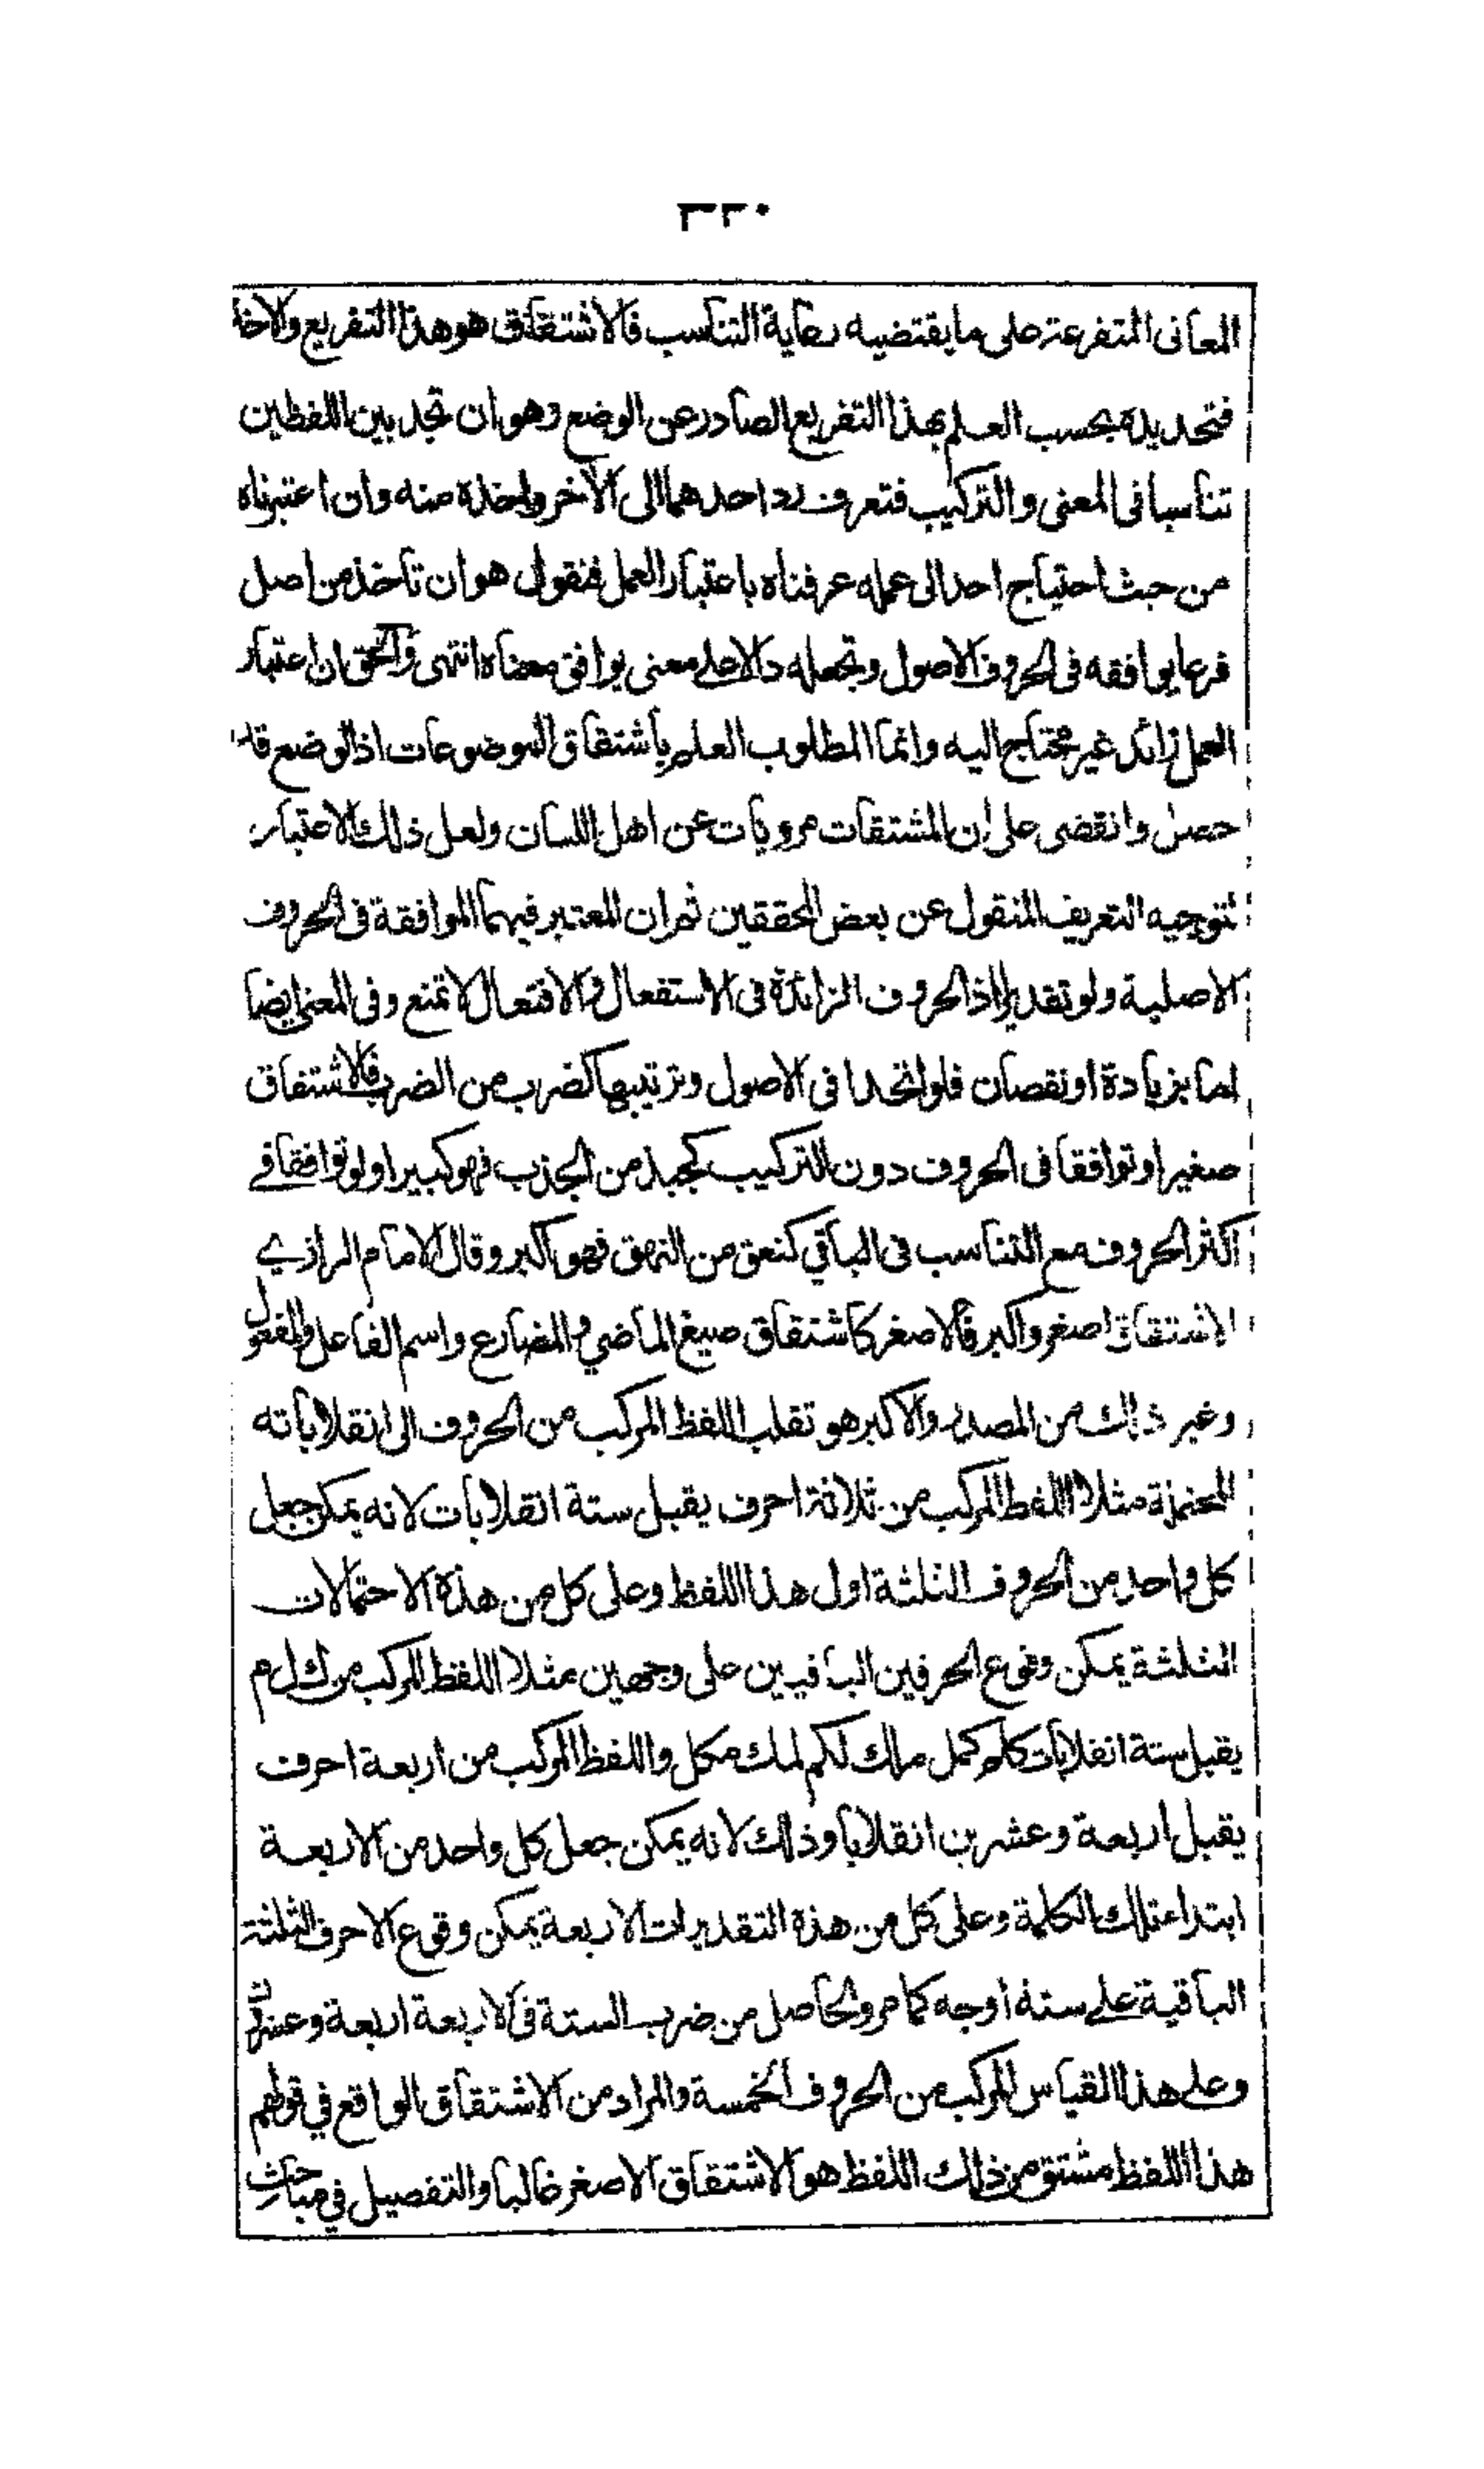 ٣٢٠
المعانى المتفرعة على ما يقتضيه رعاية التناسب فالاشتقاق هو هذا التفريع والاخذ
فتحديده بحسب العلم بهذا التفريع الصادر عن الوضع وهو ان تجد بين اللفظين
تناسبا فى المعنى والتركيب فتعرف رد احدهما الى الآخر واخذه منه وان اعتبرناه
من حيث احتياج احد الى عمله عرفناه باعتبار العمل فنقول هو ان تأخذ من اصل
فرعا يوافقه فى الحروف الاصول وتجعله دالا على معنى يوافق معناه انتهى والحق ان اعتبار
العمل زائد غير محتاج اليه وانما المطلوب العلم باشتقاق الموضوعات اذ الوضع قد
حصل وانقضى على ان المشتقات مرويات عن اهل اللسان ولعل ذلك الاعتبار
لتوجيه التعريف المنقول عن بعض المحققين ثم ان المعتبر فيهما الموافقة فى الحروف
الاصلية ولو تقديرا اذ الحروف الزائدة فى الاستفعال والافتعال لا تمنع وفى المعنى ايضا
اما بزيادة او نقصان فلو اتحدا فى الاصول وترتيبها كضرب من الضرب فالاشتقاق
صغير او توافقا فى الحروف دون التركيب كجبذ من الجذب فهو كبير او لو توافقا فے
اكثر الحروف مع التناسب فى الباقي كنعق من النهق فهو اكبر وقال الامام الرازے
الاشتقاق اصغر واكبر فالاصغر كاشتقاق صيغ الماضي والمضارع واسم الفاعل والمفعول
وغير ذلك من المصدر والاكبر هو تقلب اللفظ المركب من الحروف الى انقلاباته
المحتملة مثلا اللفظ المركب من ثلاثة احرف يقبل ستة انقلابات لانه يمكن جعل
كل واحد من الحروف الثلثة اول هذا اللفظ وعلى كل من هذه الاحتمالات
الثلثة يمكن وقوع الحرفين الباقيين على وجهين مثلا اللفظ المركب من ك ل م
يقبل ستة انقلابات كلم كمل ملك لكم لمك مكل واللفظ المركب من اربعة احرف
يقبل اربعة وعشرين انقلابا وذلك لانه يمكن جعل كل واحد من الاربعة
ابتداء تلك الكلمة وعلى كل من هذه التقديرات الاربعة يمكن وقوع الاحرف الثلثة
الباقية على ستة اوجه كما مر والحاصل من ضرب الستة فى الاربعة اربعة وعشرون
وعلى هذا القياس المركب من الحروف الخمسة والمراد من الاشتقاق الواقع في قولهم
هذا اللفظ مشتق من ذلك اللفظ هو الاشتقاق الاصغر غالبا والتفصيل في مباحث